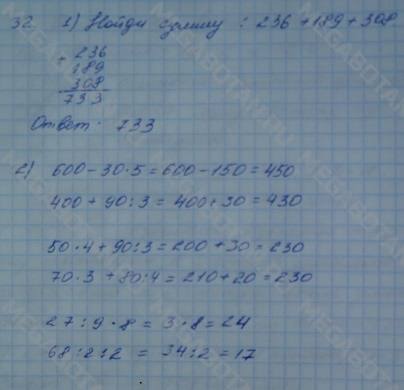 32. 1) Найди сумму : 236 + 189 + 308.
+ 236
189
308
733
Ответ: 733
2)
600 - 30 · 5 = 600 - 150 = 450
400 + 90 : 3 = 400 + 30 = 430
50 · 4 + 90 : 3 = 200 + 30 = 230
70 · 3 + 80 : 4 = 210 + 20 = 230
27 : 9 · 8 = 3 · 8 = 24
68 : 2 : 2 = 34 : 2 = 17
MEGABOTAN.RU